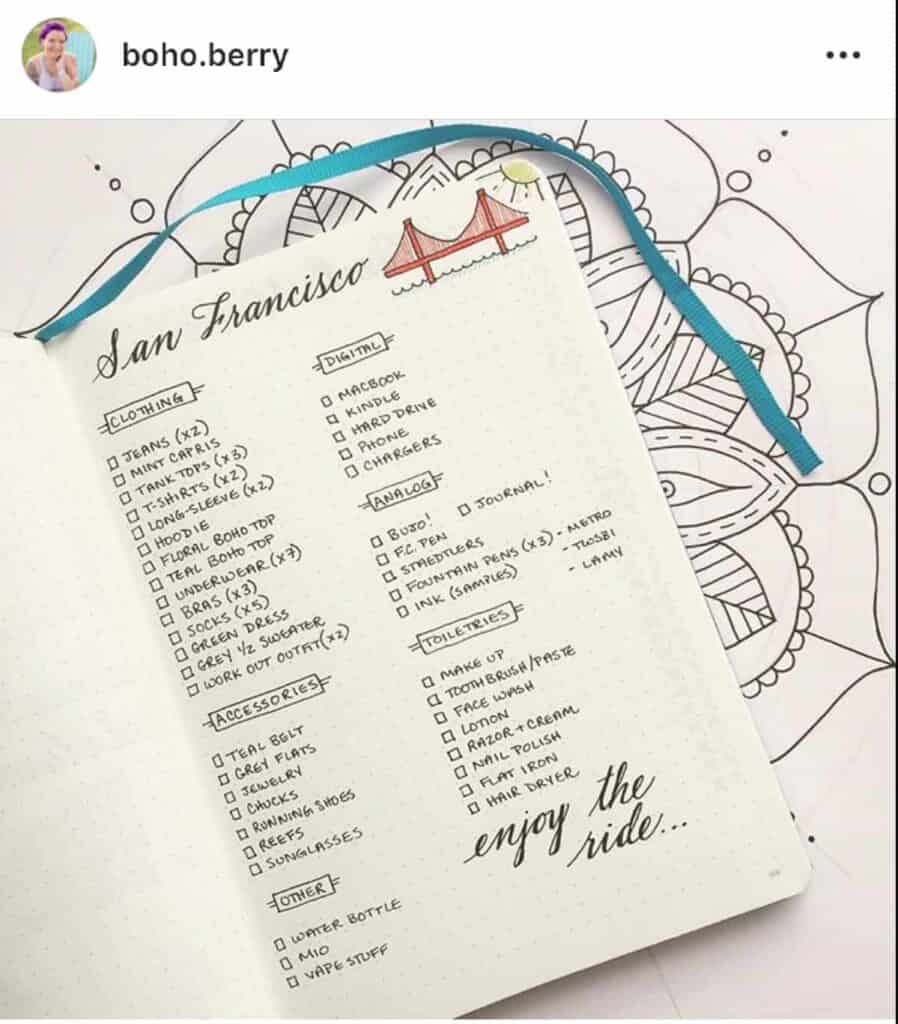 boho.berry
San Francisco
CLOTHING
JEANS (x2)
MINT CAPRIS
TANK TOPS (x3)
T-SHIRTS (x2)
LONG-SLEEVE (x2)
HOODIE
FLORAL BOHO TOP
TEAL BOHO TOP
UNDERWEAR (x7)
BRAS (x3)
SOCKS (x5)
GREEN DRESS
GREY 1/2 SWEATER
WORK OUT OUTFIT (x2)
ACCESSORIES
TEAL BELT
GREY FLATS
JEWELRY
CHUCKS
RUNNING SHOES
REEFS
SUNGLASSES
OTHER
WATER BOTTLE
MIO
VAPE STUFF
DIGITAL
MACBOOK
KINDLE
HARD DRIVE
PHONE
CHARGERS
ANALOG
BUJO! JOURNAL!
F.C. PEN
STAEDTLERS
FOUNTAIN PENS (x3) - METRO
- TWSBI
- LAMY
INK (SAMPLES)
TOILETRIES
MAKE UP
TOOTHBRUSH/PASTE
FACE WASH
LOTION
RAZOR + CREAM
NAIL POLISH
FLAT IRON
HAIR DRYER
enjoy the
ride...